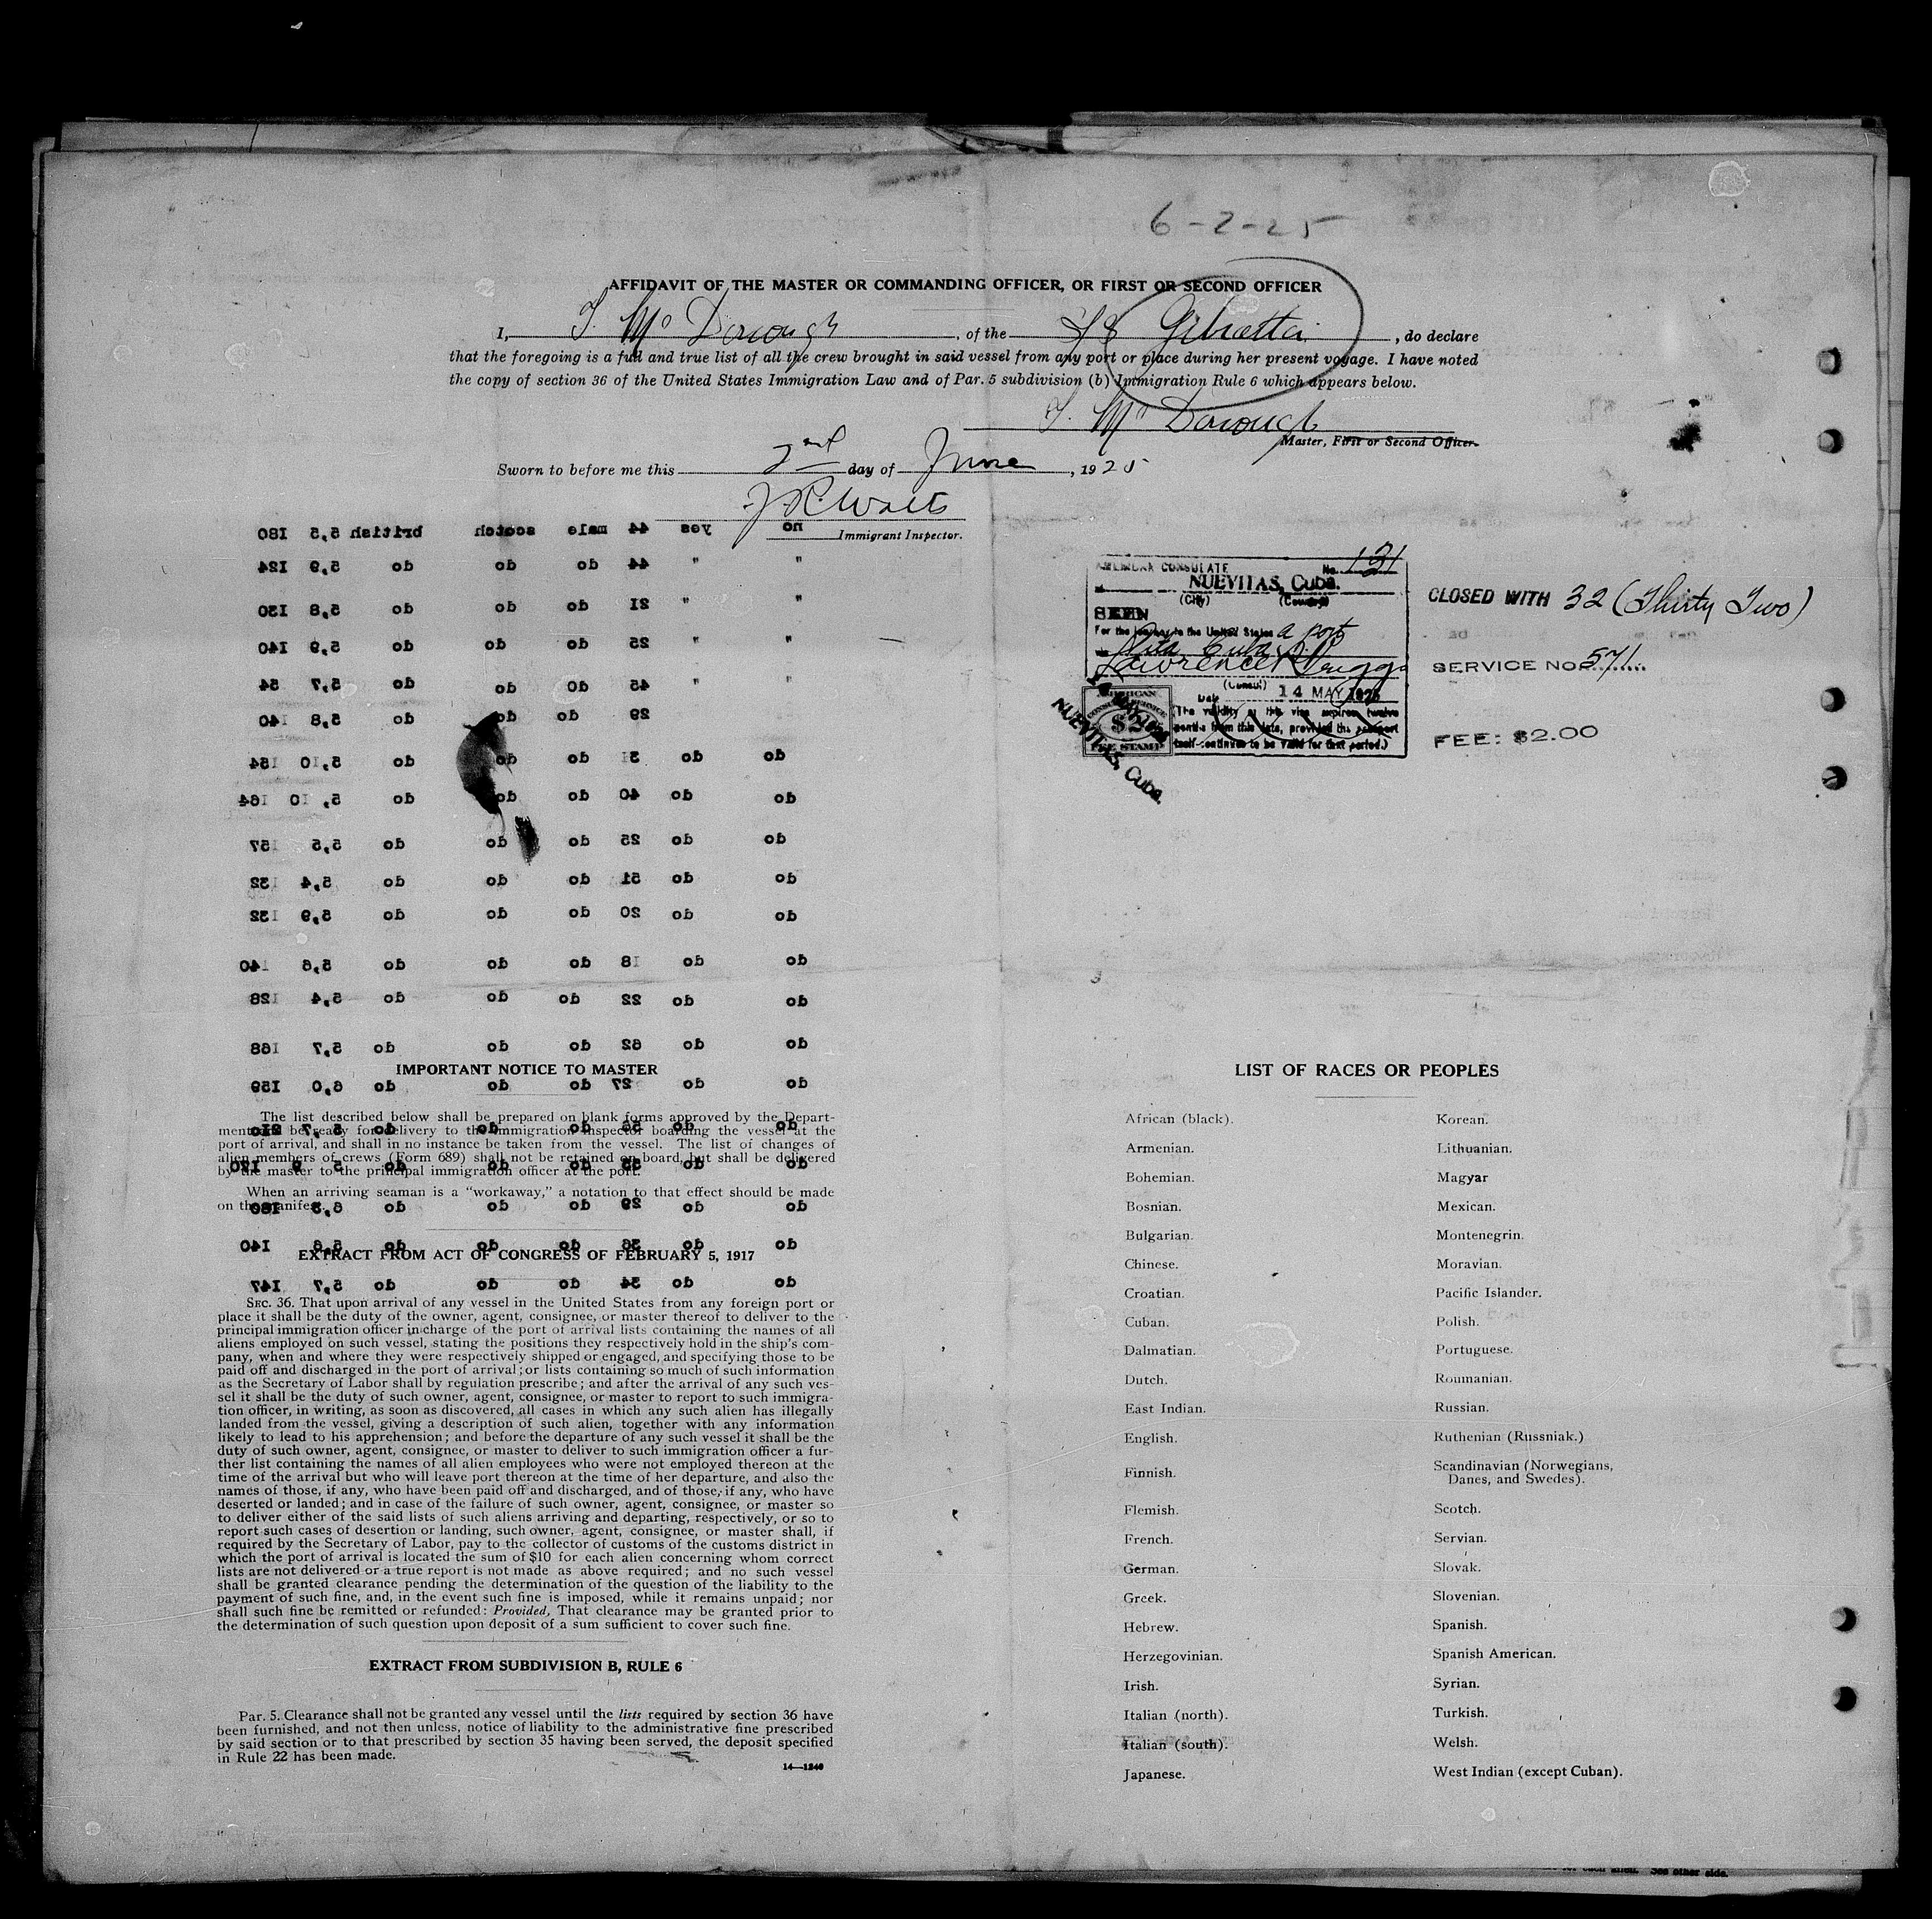 6-2-25
AFFIDAVIT OF THE MASTER OR COMMANDING OFFICER, OR FIRST OR SECOND OFFICER
I, , of the , do declare
that the foregoing is a full and true list of all the crew brought in said vessel from any port or place during her present voyage. I have noted
the copy of section 36 of the United States Immigration Law and of Par. 5 subdivision (b) Immigration Rule 6 which appears below.
Master, First or Second Officer.
Sworn to before me this 2nd day of June, 1925
Immigrant Inspector.
no yes 44 male scotch british 5,5 180
" " 44 do do do 5,9 124
" " 21 do do do 5,8 130
" " 25 do do do 5,9 140
" " 45 do do do 5,7 54
29 do do do 5,8 140
do do 31 do do do 5,10 154
do do 40 do do do 5,10 164
do do 25 do do do 5,5 157
do do 51 do do do 5,4 132
do do 20 do do do 5,9 132
do do 18 do do do 5,6 140
do do 22 do do do 5,4 128
do do 62 do do do 5,7 168
do do 27 do do do 6,0 159
do do do do do 5,7
do do do do do
do do 29 do do do
do do 36 do do do 5,6 140
do do 34 do do do 5,7 147
AMERICAN CONSULATE No. 131
NUEVITAS, Cuba.
(City) (Country)
SEEN
For the journey to the United States a port
Lawrence
(Consul)
Date 14 MAY 1925
(The validity of this visa expires twelve
months from this date, provided the passport
itself continues to be valid for that period.)
AMERICAN
CONSULAR SERVICE
$2
FEE STAMP
NUEVITAS, Cuba.
CLOSED WITH 32 (Thirty Two)
SERVICE NO. 571
FEE: $2.00
IMPORTANT NOTICE TO MASTER
The list described below shall be prepared on blank forms approved by the Depart-
ment and be ready for delivery to the immigration inspector boarding the vessel at the
port of arrival, and shall in no instance be taken from the vessel. The list of changes of
alien members of crews (Form 689) shall not be retained on board, but shall be delivered
by the master to the principal immigration officer at the port.
When an arriving seaman is a "workaway," a notation to that effect should be made
on the manifest.
EXTRACT FROM ACT OF CONGRESS OF FEBRUARY 5, 1917
SEC. 36. That upon arrival of any vessel in the United States from any foreign port or
place it shall be the duty of the owner, agent, consignee, or master thereof to deliver to the
principal immigration officer in charge of the port of arrival lists containing the names of all
aliens employed on such vessel, stating the positions they respectively hold in the ship's com-
pany, when and where they were respectively shipped or engaged, and specifying those to be
paid off and discharged in the port of arrival; or lists containing so much of such information
as the Secretary of Labor shall by regulation prescribe; and after the arrival of any such ves-
sel it shall be the duty of such owner, agent, consignee, or master to report to such immigra-
tion officer, in writing, as soon as discovered, all cases in which any such alien has illegally
landed from the vessel, giving a description of such alien, together with any information
likely to lead to his apprehension; and before the departure of any such vessel it shall be the
duty of such owner, agent, consignee, or master to deliver to such immigration officer a fur-
ther list containing the names of all alien employees who were not employed thereon at the
time of the arrival but who will leave port thereon at the time of her departure, and also the
names of those, if any, who have been paid off and discharged, and of those, if any, who have
deserted or landed; and in case of the failure of such owner, agent, consignee, or master so
to deliver either of the said lists of such aliens arriving and departing, respectively, or so to
report such cases of desertion or landing, such owner, agent, consignee, or master shall, if
required by the Secretary of Labor, pay to the collector of customs of the customs district in
which the port of arrival is located the sum of $10 for each alien concerning whom correct
lists are not delivered or a true report is not made as above required; and no such vessel
shall be granted clearance pending the determination of the question of the liability to the
payment of such fine, and, in the event such fine is imposed, while it remains unpaid; nor
shall such fine be remitted or refunded: Provided, That clearance may be granted prior to
the determination of such question upon deposit of a sum sufficient to cover such fine.
EXTRACT FROM SUBDIVISION B, RULE 6
Par. 5. Clearance shall not be granted any vessel until the lists required by section 36 have
been furnished, and not then unless, notice of liability to the administrative fine prescribed
by said section or to that prescribed by section 35 having been served, the deposit specified
in Rule 22 has been made.
14—1240
LIST OF RACES OR PEOPLES
African (black).
Armenian.
Bohemian.
Bosnian.
Bulgarian.
Chinese.
Croatian.
Cuban.
Dalmatian.
Dutch.
East Indian.
English.
Finnish.
Flemish.
French.
German.
Greek.
Hebrew.
Herzegovinian.
Irish.
Italian (north).
Italian (south).
Japanese.
Korean.
Lithuanian.
Magyar
Mexican.
Montenegrin.
Moravian.
Pacific Islander.
Polish.
Portuguese.
Roumanian.
Russian.
Ruthenian (Russniak.)
Scandinavian (Norwegians,
Danes, and Swedes).
Scotch.
Servian.
Slovak.
Slovenian.
Spanish.
Spanish American.
Syrian.
Turkish.
Welsh.
West Indian (except Cuban).
See other side.